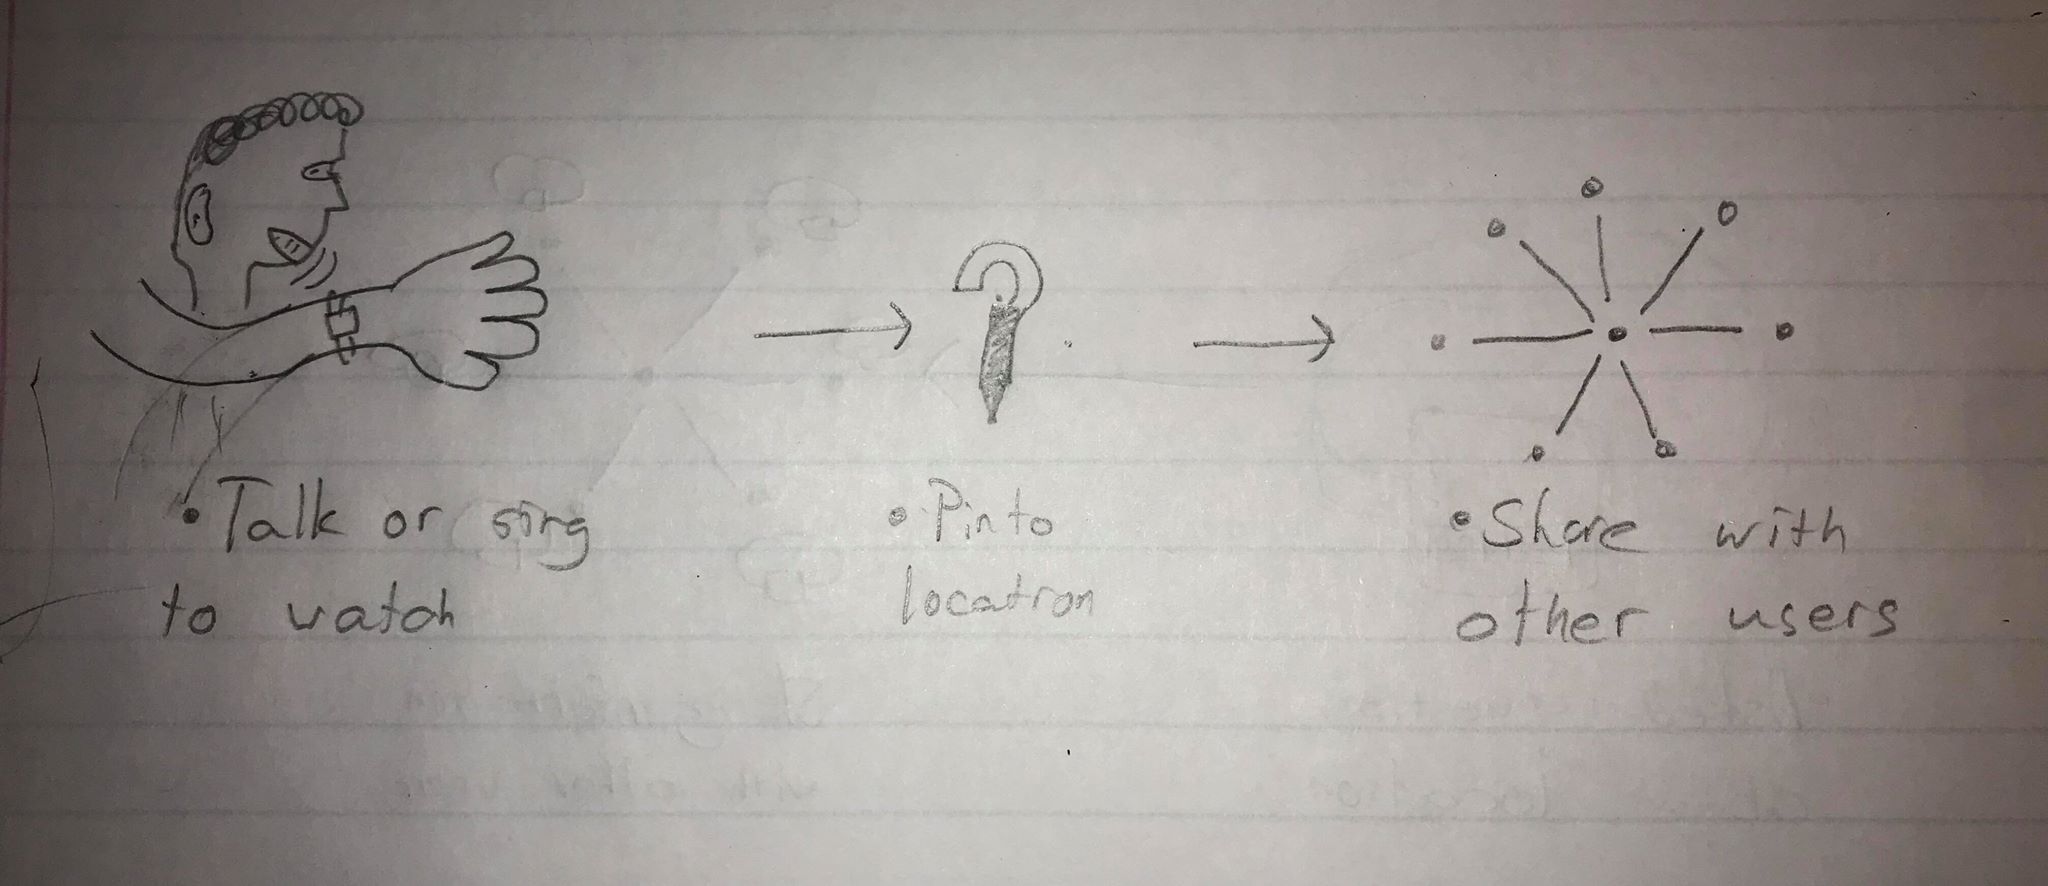 • Talk or sing
to watch
• Pin to
location
• Share with
other users